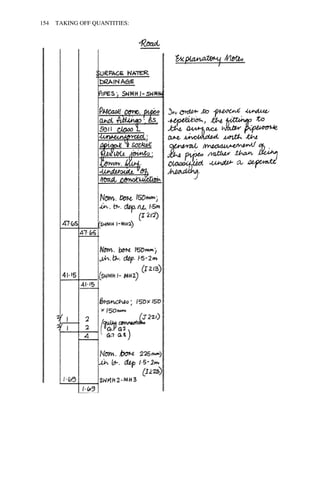 154 TAKING OFF QUANTITIES:
Road
Explanatory Note
SURFACE WATER
DRAINAGE
PIPES; SWMH1-SWMH4
Precast conc. pipes
and fittings BS
5911 class L
unreinforced;
spigot & socket
flexible joints;
Comm. Surf.
underside of
road construction
In order to prevent undue
repetition, the fittings to
the surface water pipework
are included with the
general measurement of
the pipes rather than being
classified under a seperate
heading.
Nom. bore 150mm;
in tr. dep. n.e. 1.5m
(I 212)
47.65 (SWMH 1-MH2)
47.65
Nom. bore 150mm;
in tr. dep 1.5-2m
(I 213)
41.15 (SWMH1- MH2)
41.15
Branches; 150x150
x 150mm
(J 221)
2/ 1 2 (gully connection
2/ 1 2 G1 G2
4 G7 G8)
Nom. bore 225mm;
in tr. dep 1.5-2m
(I 223)
1.69 SWMH2-MH3
1.69